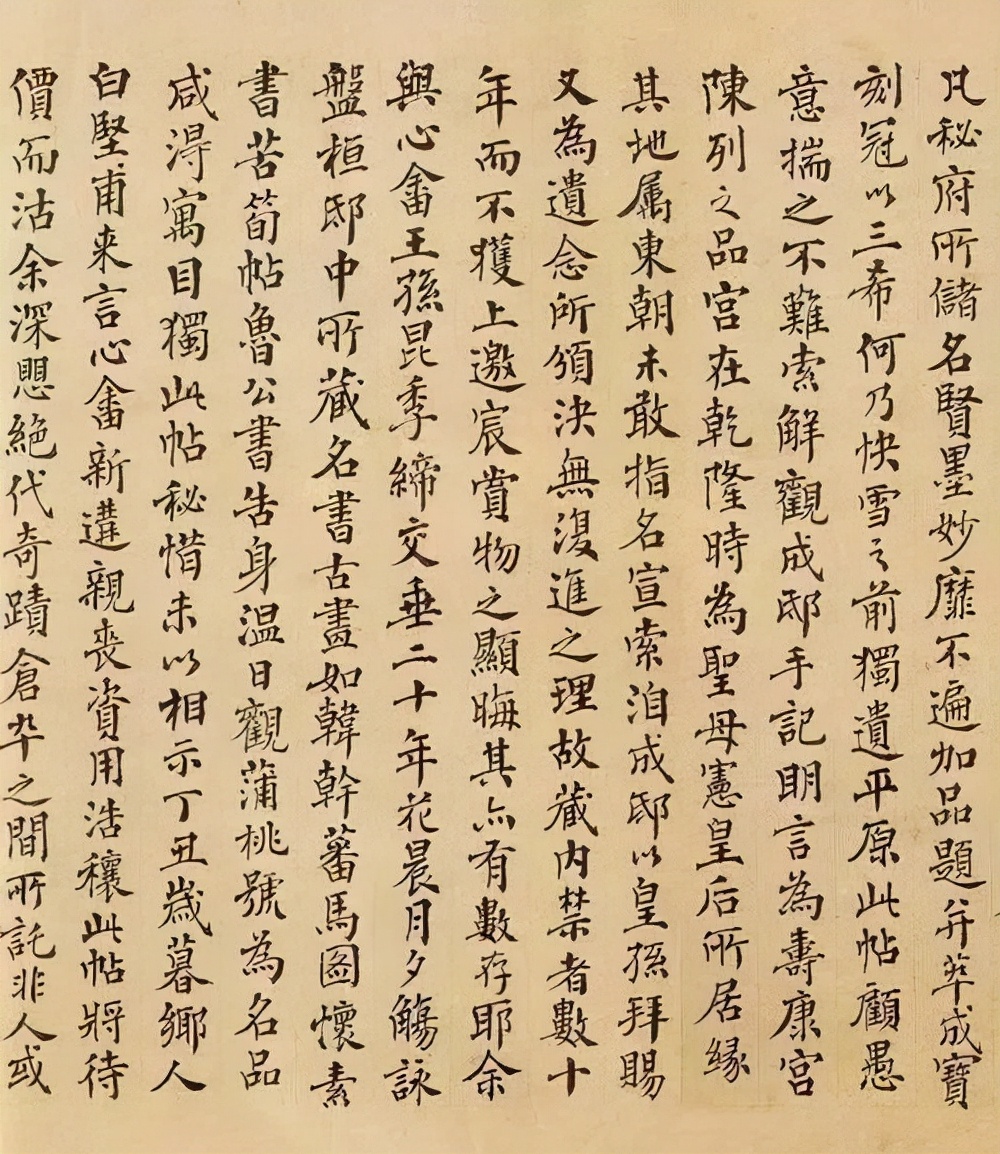 凡秘府所儲名賢墨妙靡不遍加品題并萃成寶
刻冠以三希何乃快雪之前獨遺平原此帖顧愚
意揣之不難索解觀成邸手記明言為壽康宮
陳列之品宮在乾隆時為聖母憲皇后所居緣
其地屬東朝未敢指名宣索洎成邸以皇孫拜賜
又為遺念所頒決無復進之理故藏内禁者數十
年而不獲上邀宸賞物之顯晦其亦有數存耶余
與心畬王孫昆季締交垂二十年花晨月夕觴詠
盤桓邸中所藏名書古畫如韓幹蕃馬圖懷素
書苦筍帖魯公書告身温日觀蒲桃號為名品
咸得寓目獨此帖秘惜未以相示丁丑歲暮鄉人
白堅甫来言心畬新遘親喪資用浩穰此帖將待
價而沽余深恐絕代奇蹟倉卒之間所託非人或